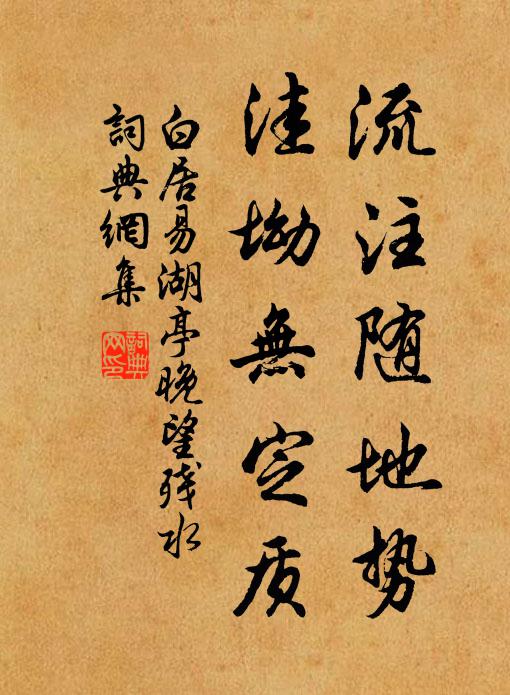 流注随地势
洼坳無定质
白居易湖亭晚望残水
詞典網集
詞典
网印